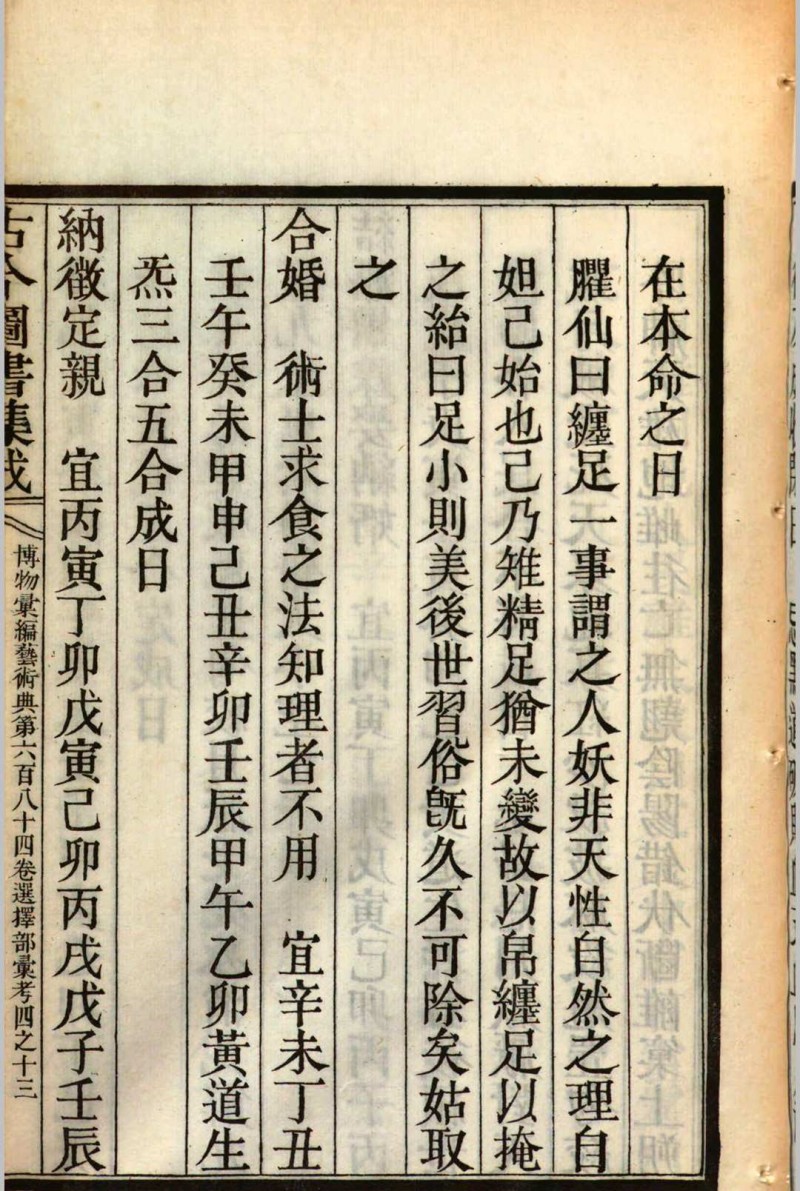 在本命之日
臞仙曰纏足一事謂之人妖非天性自然之理自
妲己始也己乃雉精足猶未變故以帛纏足以掩
之紿曰足小則美後世習俗旣久不可除矣姑取
之
合婚　術士求食之法知理者不用　宜辛未丁丑
壬午癸未甲申己丑辛卯壬辰甲午乙卯黃道生
炁三合五合成日
納徵定親　宜丙寅丁卯戊寅己卯丙戌戊子壬辰
古今圖書集成
博物彙編藝術典第六百八十四卷選擇部彙考四之十三